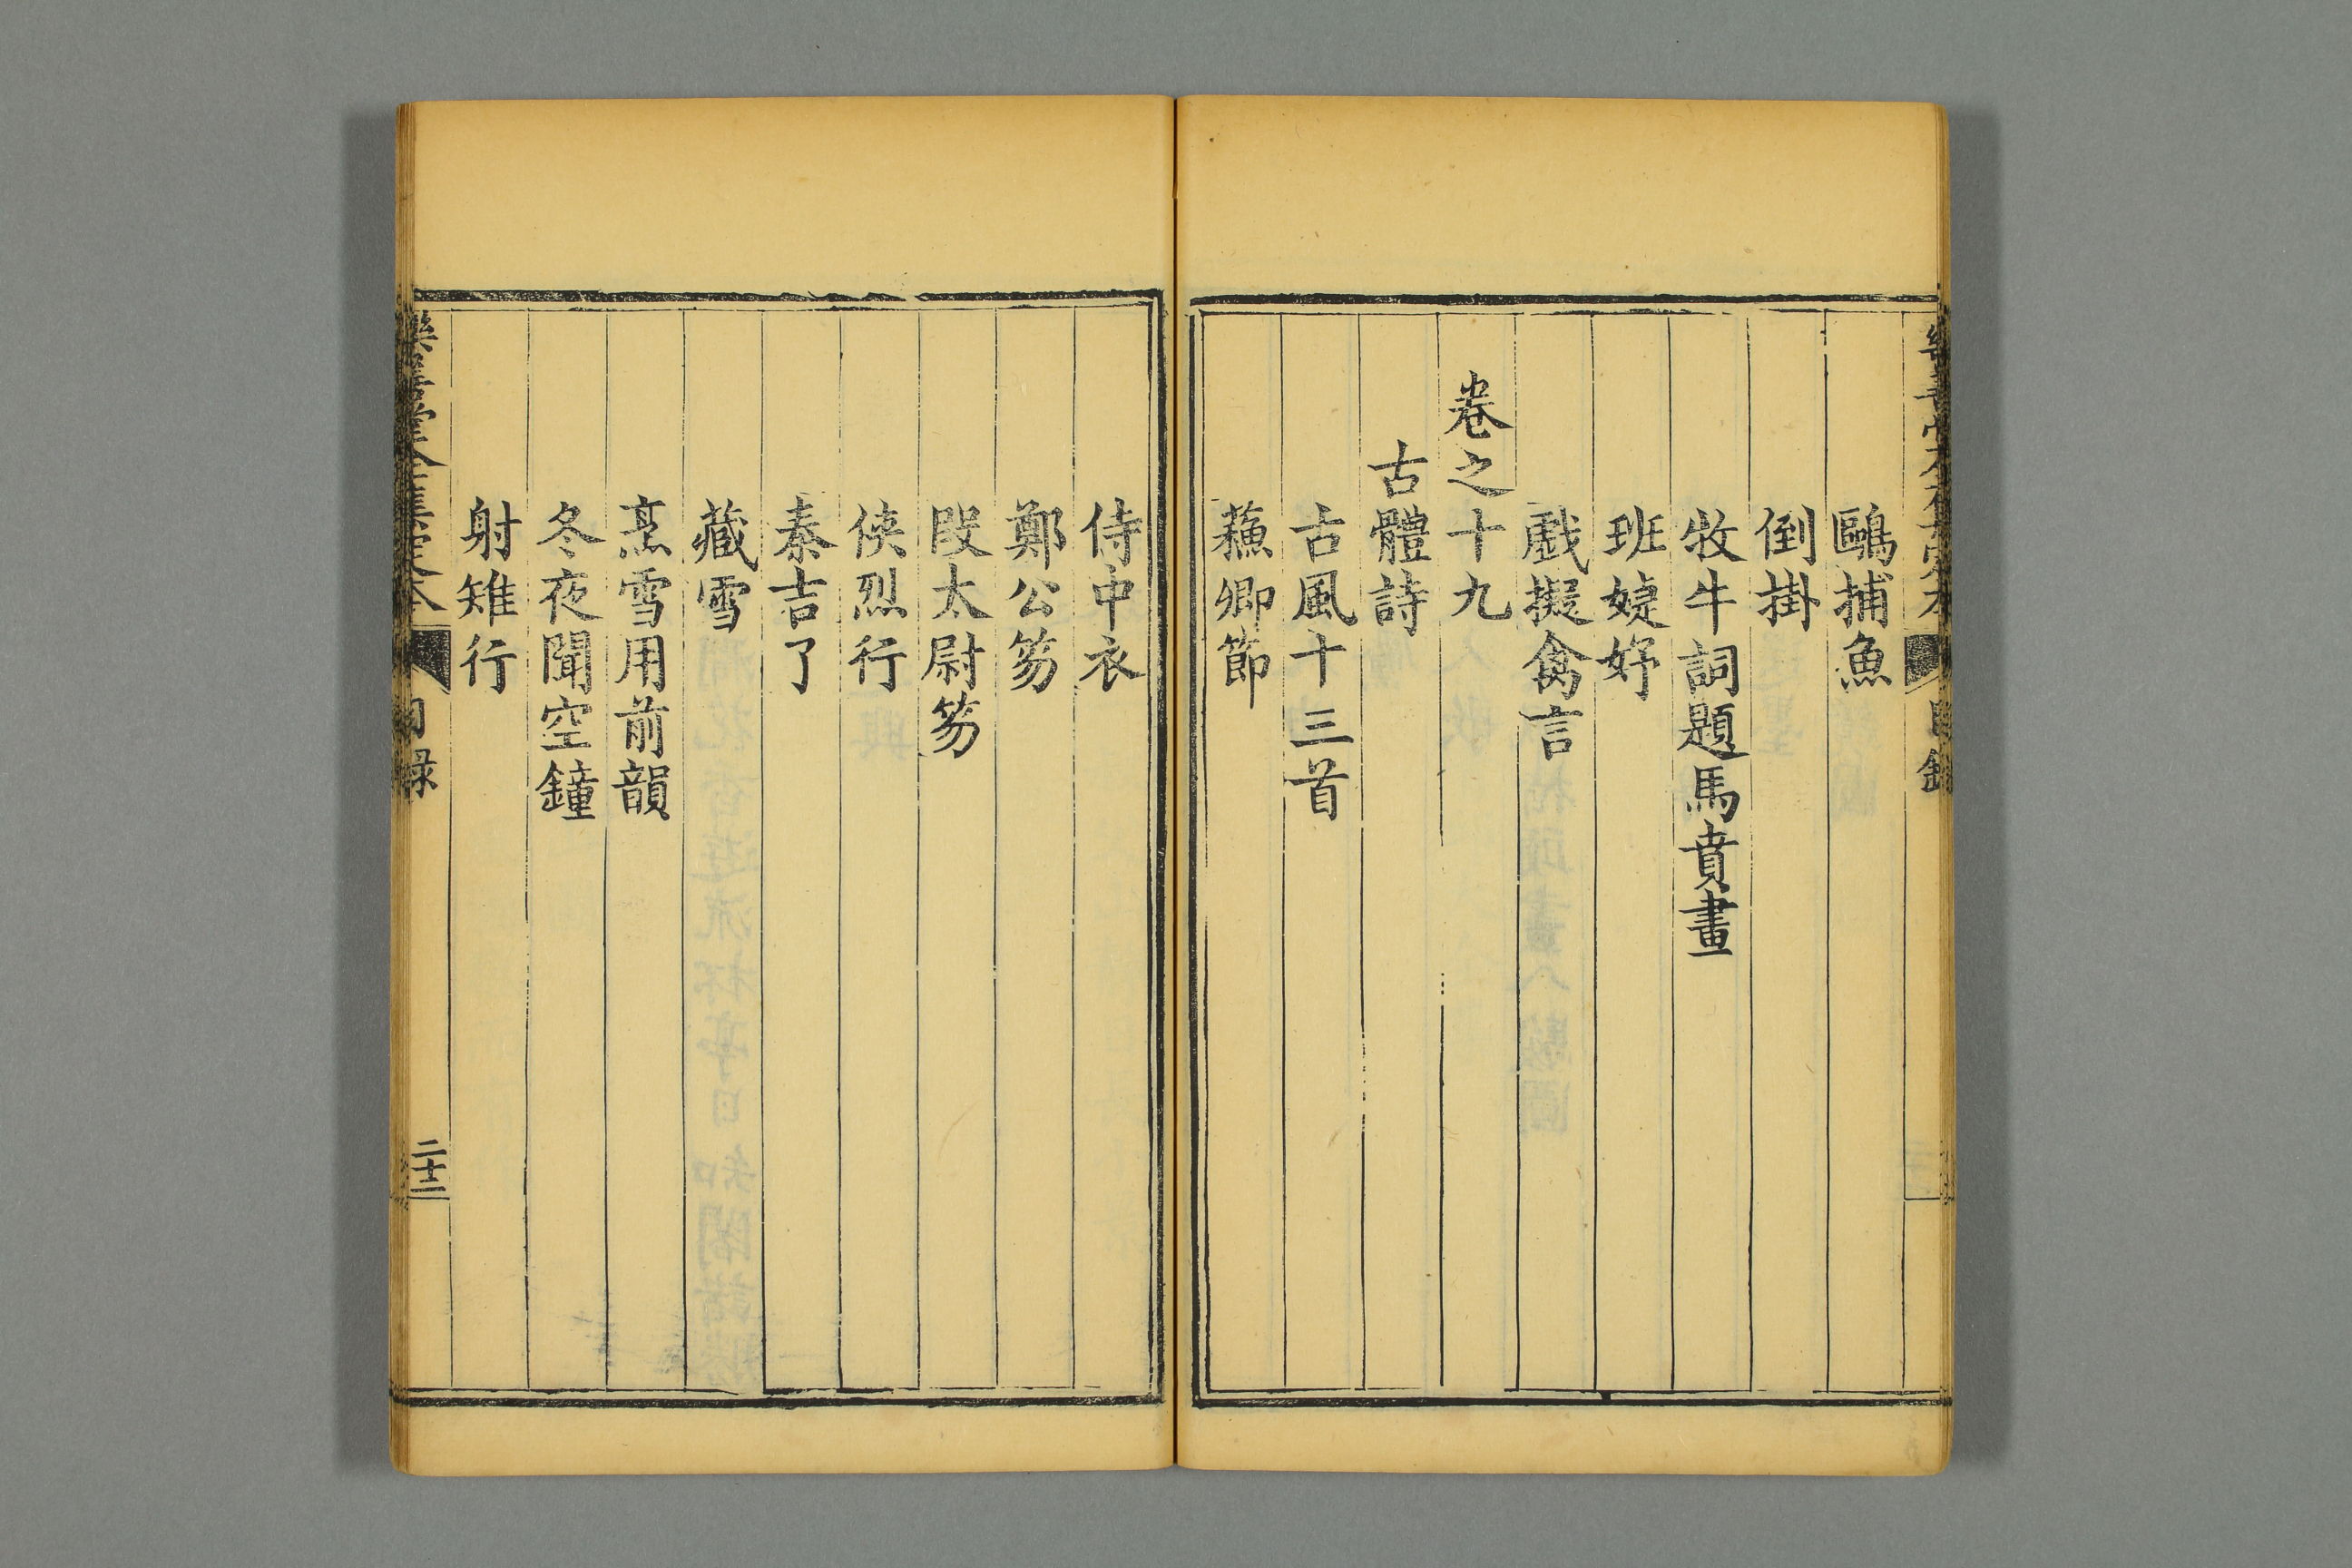 鷗捕魚
倒掛
牧牛詞題馬賁畫
班婕妤
戲擬禽言
卷之十九
古體詩
古風十三首
蘓卿節
侍中衣
鄭公笏
段太尉笏
俠烈行
秦吉了
藏雪
烹雪用前韻
冬夜聞空鐘
射雉行
樂善堂全集定本
目錄
二十二